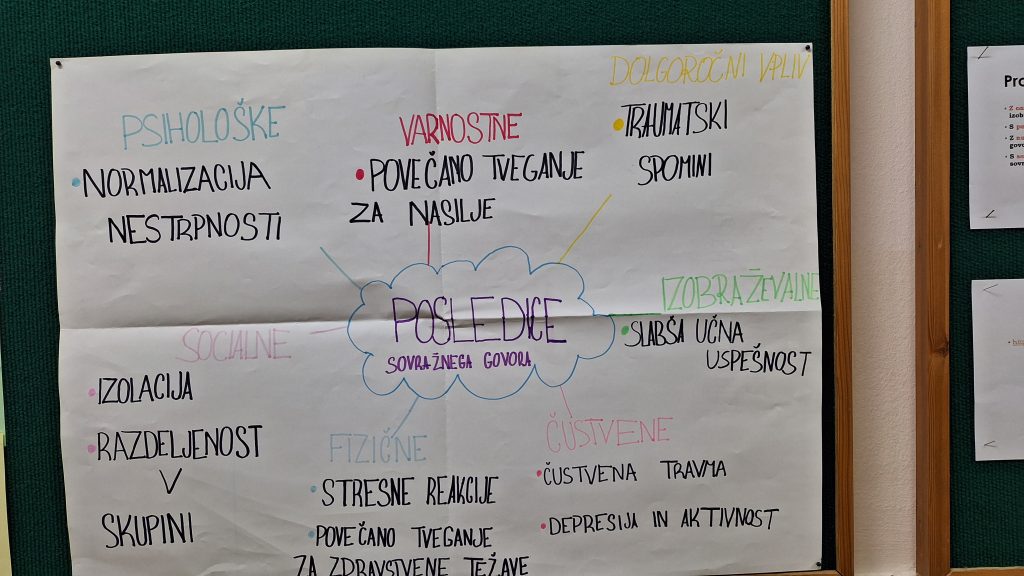 DOLGOROČNI VPLIV
• TRAUMATSKI
SPOMINI
PSIHOLOŠKE
• NORMALIZACIJA
NESTRPNOSTI
VARNOSTNE
• POVEČANO TVEGANJE
ZA NASILJE
POSLEDICE
SOVRAŽNEGA GOVORA
IZOBRAŽEVALNE
• SLABŠA UČNA
USPEŠNOST
SOCIALNE
• IZOLACIJA
• RAZDELJENOST
V
SKUPINI
FIZIČNE
• STRESNE REAKCIJE
• POVEČANO TVEGANJE
ZA ZDRAVSTVENE TEŽAVE
ČUSTVENE
• ČUSTVENA TRAVMA
• DEPRESIJA IN AKTIVNOST